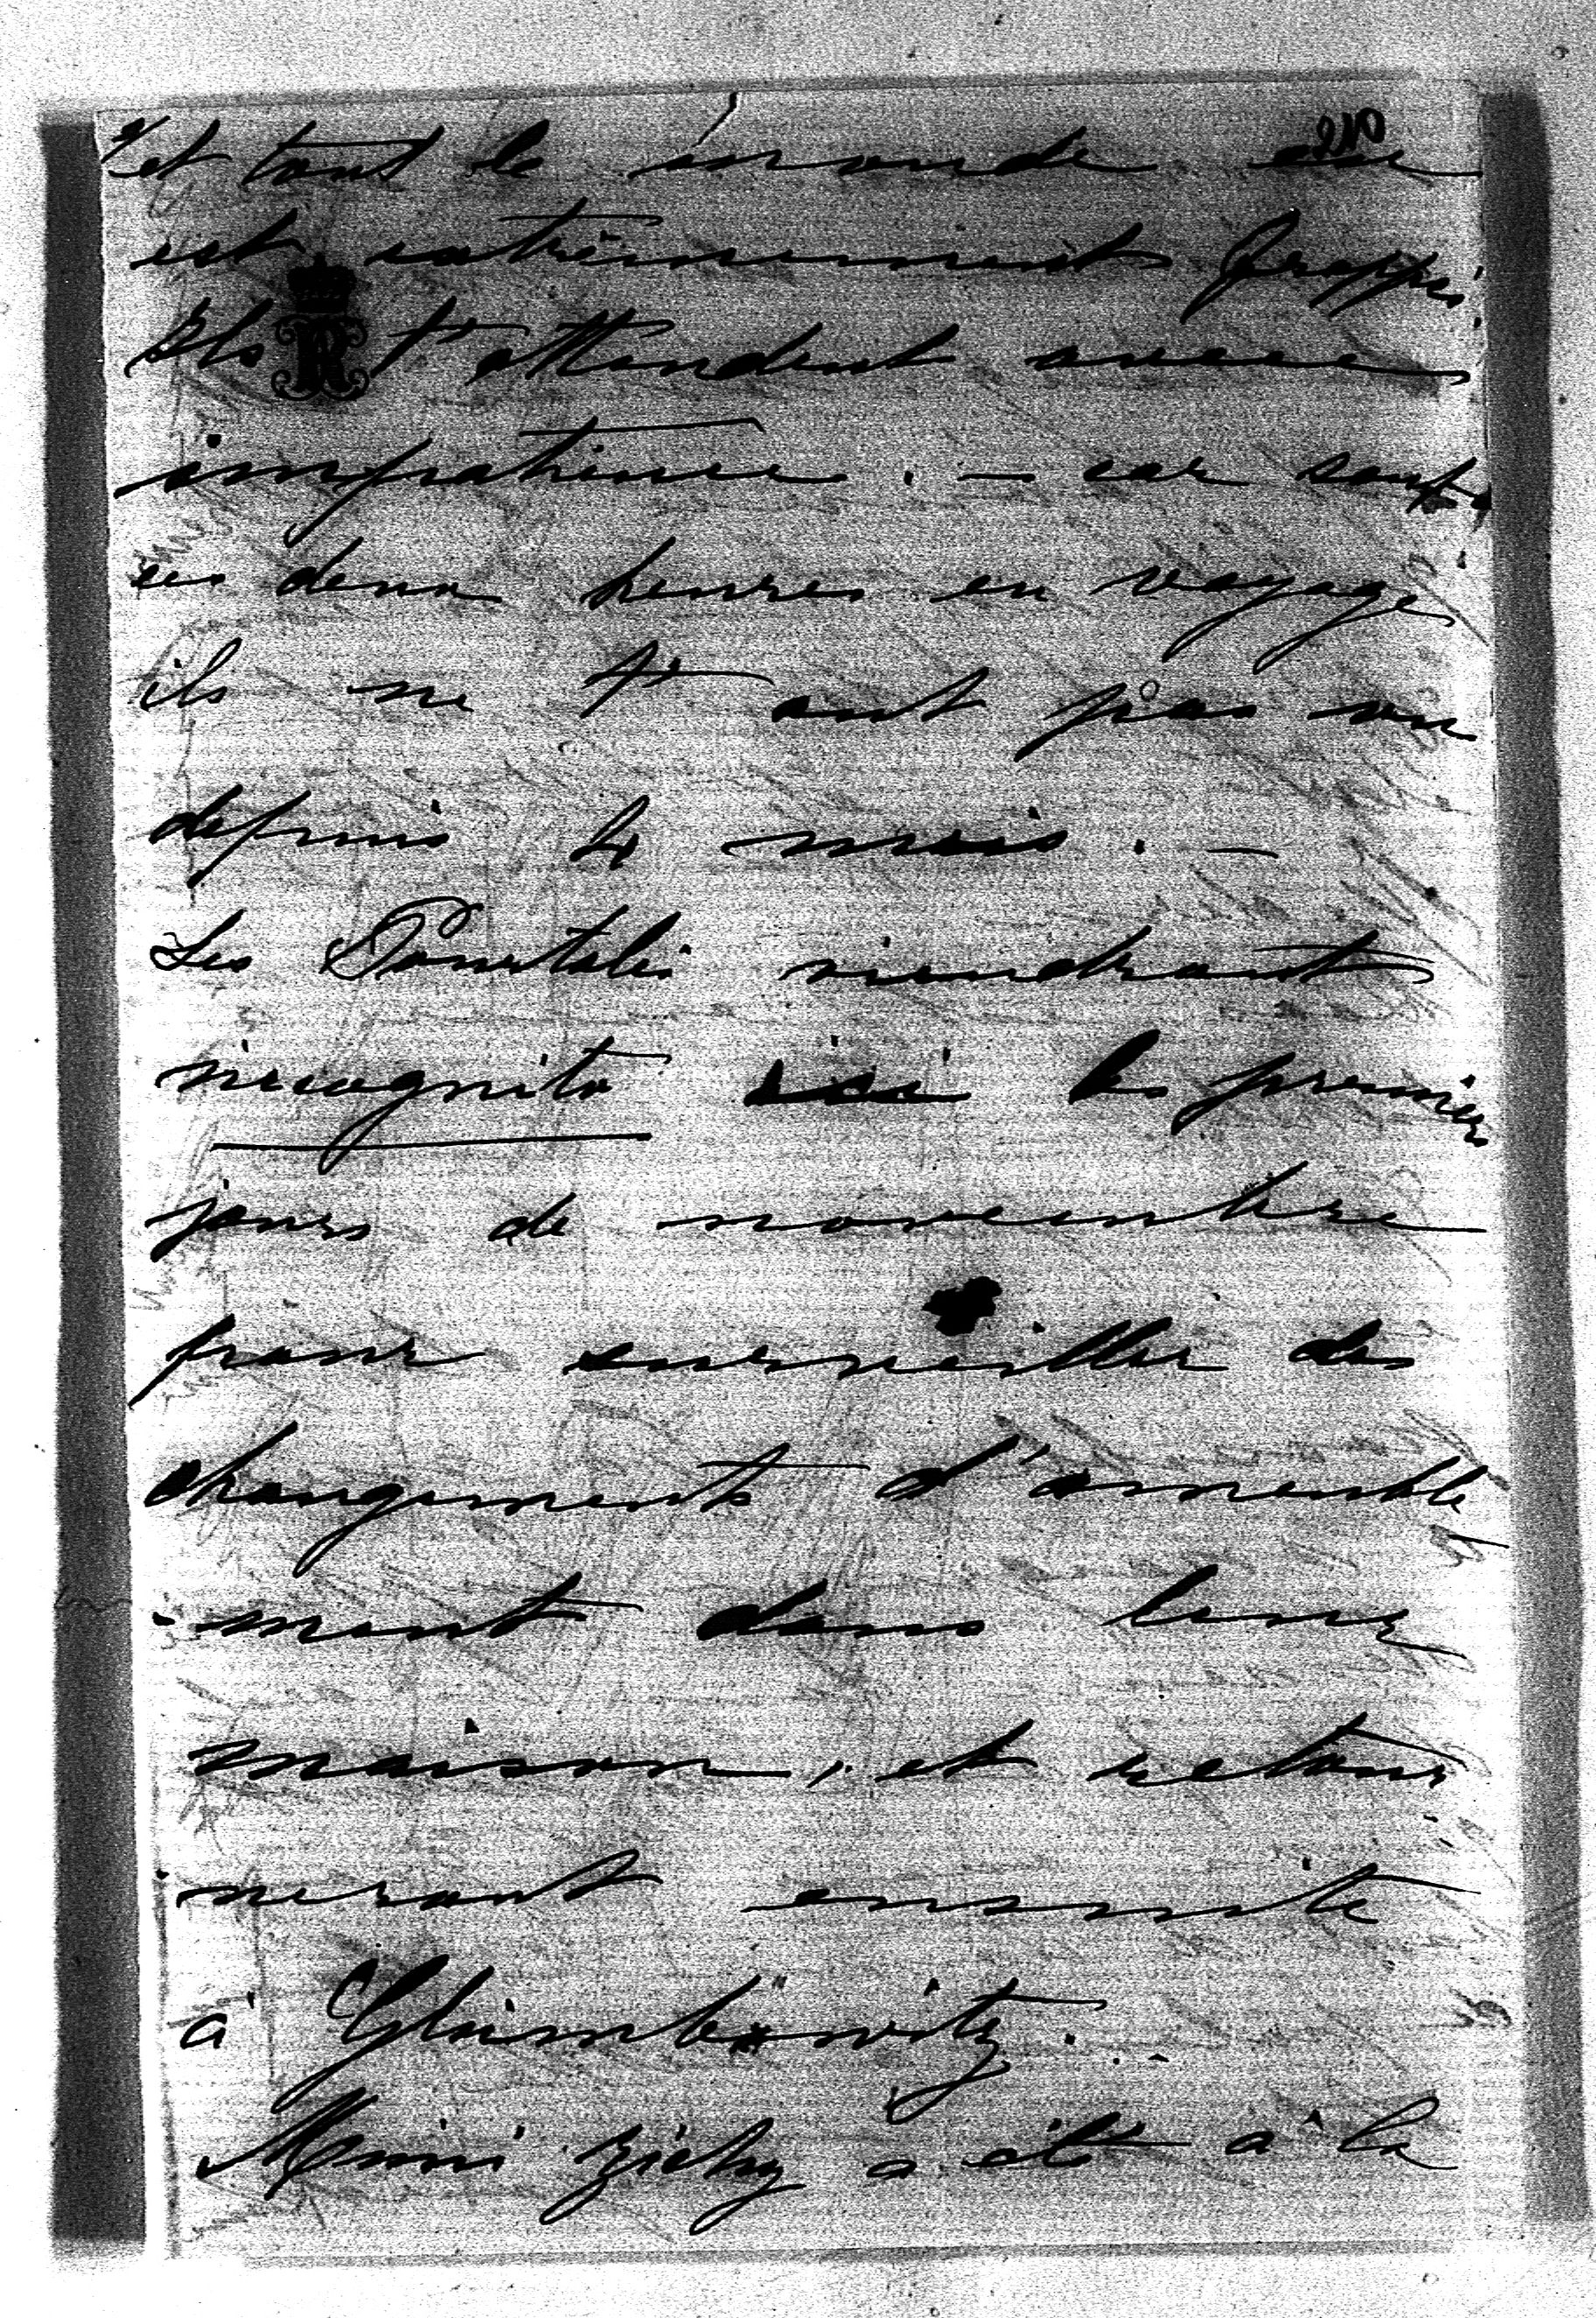 et tout le monde en
est extrêmement frappé.
Ils t'attendent avec
impatience. — car sauf
ces deux heures en voyage
ils ne t'ont pas vu
depuis 4 mois. —
Les Pourtalès viendront
incognito ici les premiers
jours de novembre
pour surveiller des
changements d'ameuble
-ment dans leur
maison, et retour
-neront ensuite
à Glumbowitz.
Mimi Zichy a été à la